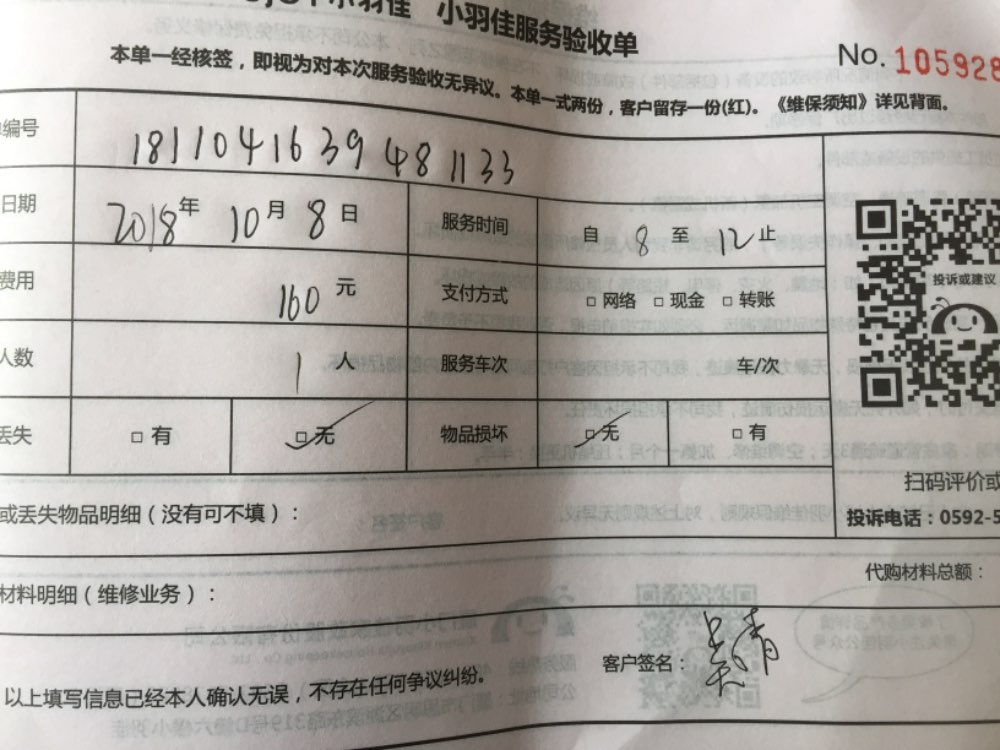 小羽佳 小羽佳服务验收单
No. 105928
本单一经核签，即视为对本次服务验收无异议。本单一式两份，客户留存一份(红)。《维保须知》详见背面。
编号 181104163948 1133
日期 2018年 10月 8日 服务时间 自 8 至 12 止
费用 160 元 支付方式 □ 网络 □ 现金 □ 转账
人数 1 人 服务车次 车/次
丢失 □ 有 □ 无 物品损坏 □ 无 □ 有
投诉或建议
扫码评价或
投诉电话：0592-5
或丢失物品明细（没有可不填）：
代购材料总额：
材料明细（维修业务）：
客户签名：
以上填写信息已经本人确认无误，不存在任何争议纠纷。